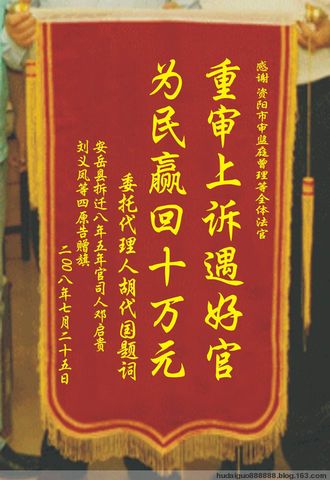 感谢 资阳市审监庭曾理等全体法官
重审上诉遇好官
为民赢回十万元
委托代理人胡代国题词
安岳县拆迁八年五年官司人邓启贵
刘义凤等四原告赠旗
二〇〇八年七月二十五日
hudaiguo888888.blog.163.com